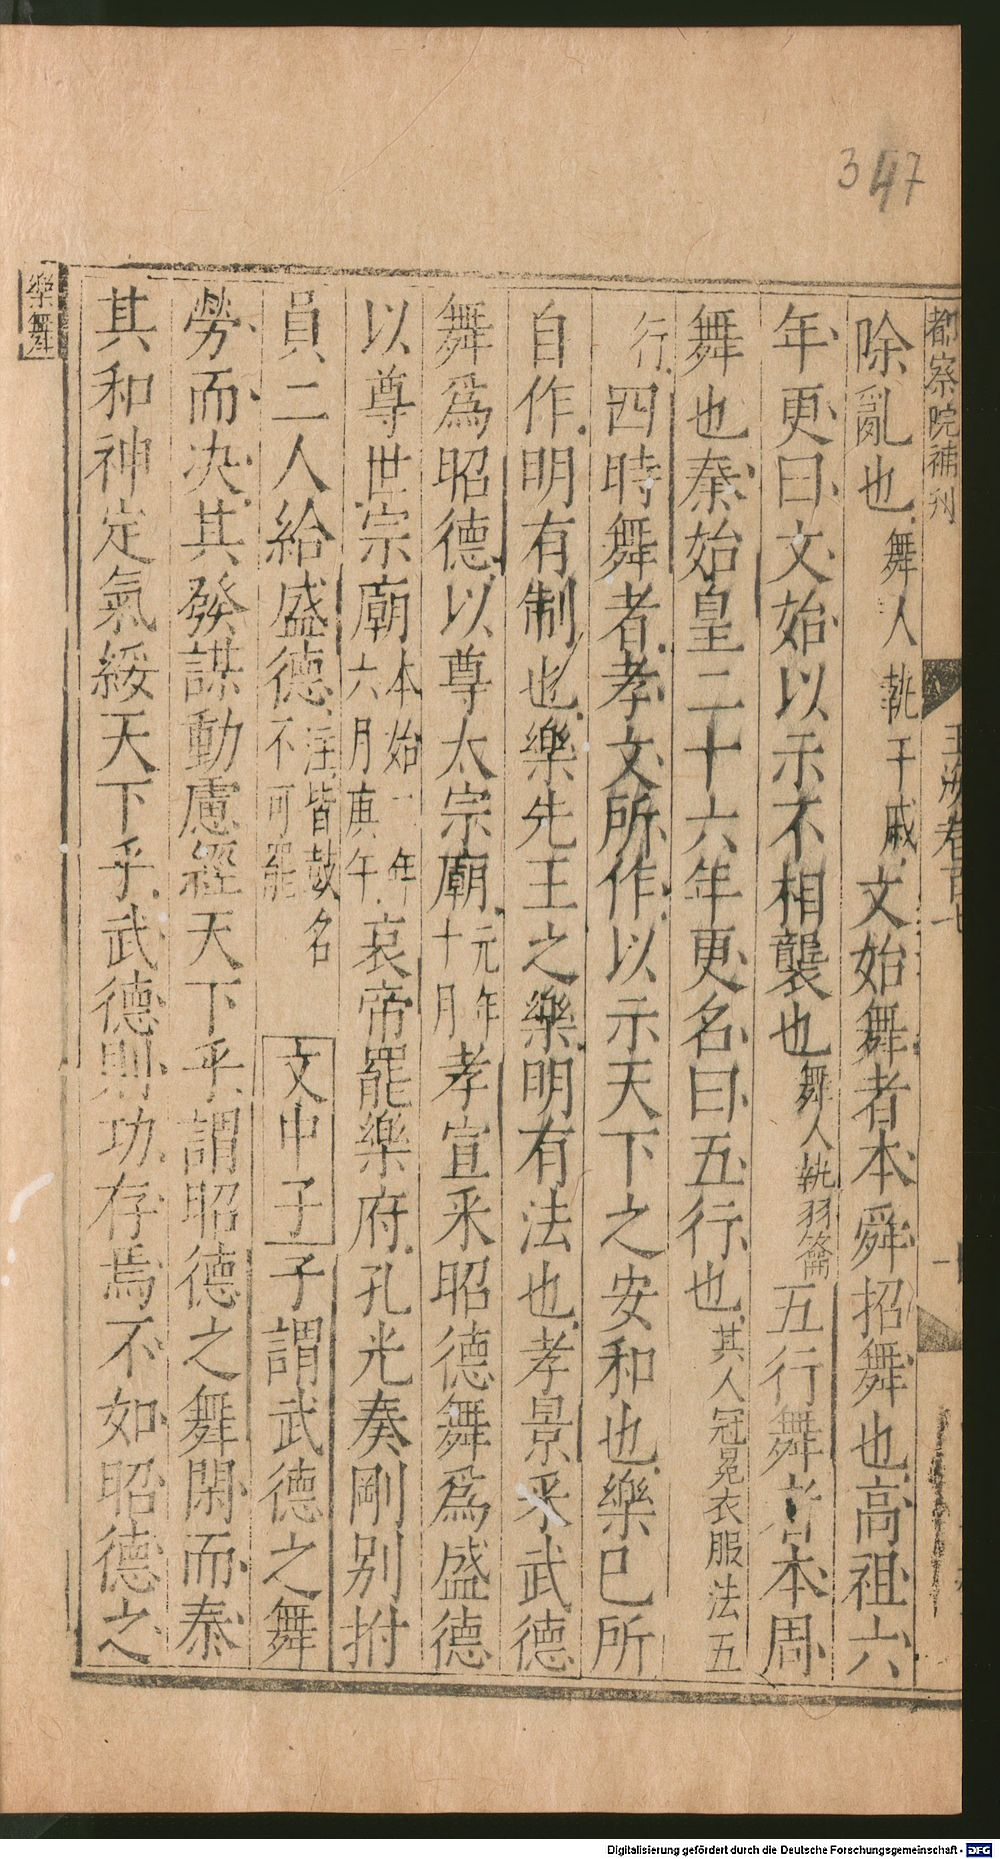 347
都察院補刋
玉海卷百七
除亂也舞人執干戚文始舞者本舜招舞也高祖六
年更曰文始以示不相襲也舞人執羽籥五行舞者本周
舞也秦始皇二十六年更名曰五行也其人冠冕衣服法五
行四時舞者孝文所作以示天下之安和也樂已所
自作明有制也樂先王之樂明有法也孝景采武德
舞爲昭德以尊太宗廟元年十月孝宣采昭德舞爲盛德
以尊世宗廟本始二年六月庚午哀帝罷樂府孔光奏剛别拊
員二人給盛德注皆鼓名不可罷文中子子謂武德之舞
勞而决其發謀動慮經天下乎謂昭德之舞閑而泰
其和神定氣綏天下乎武德則功存焉不如昭德之
樂舞
Digitalisierung gefördert durch die Deutsche Forschungsgemeinschaft - DFG